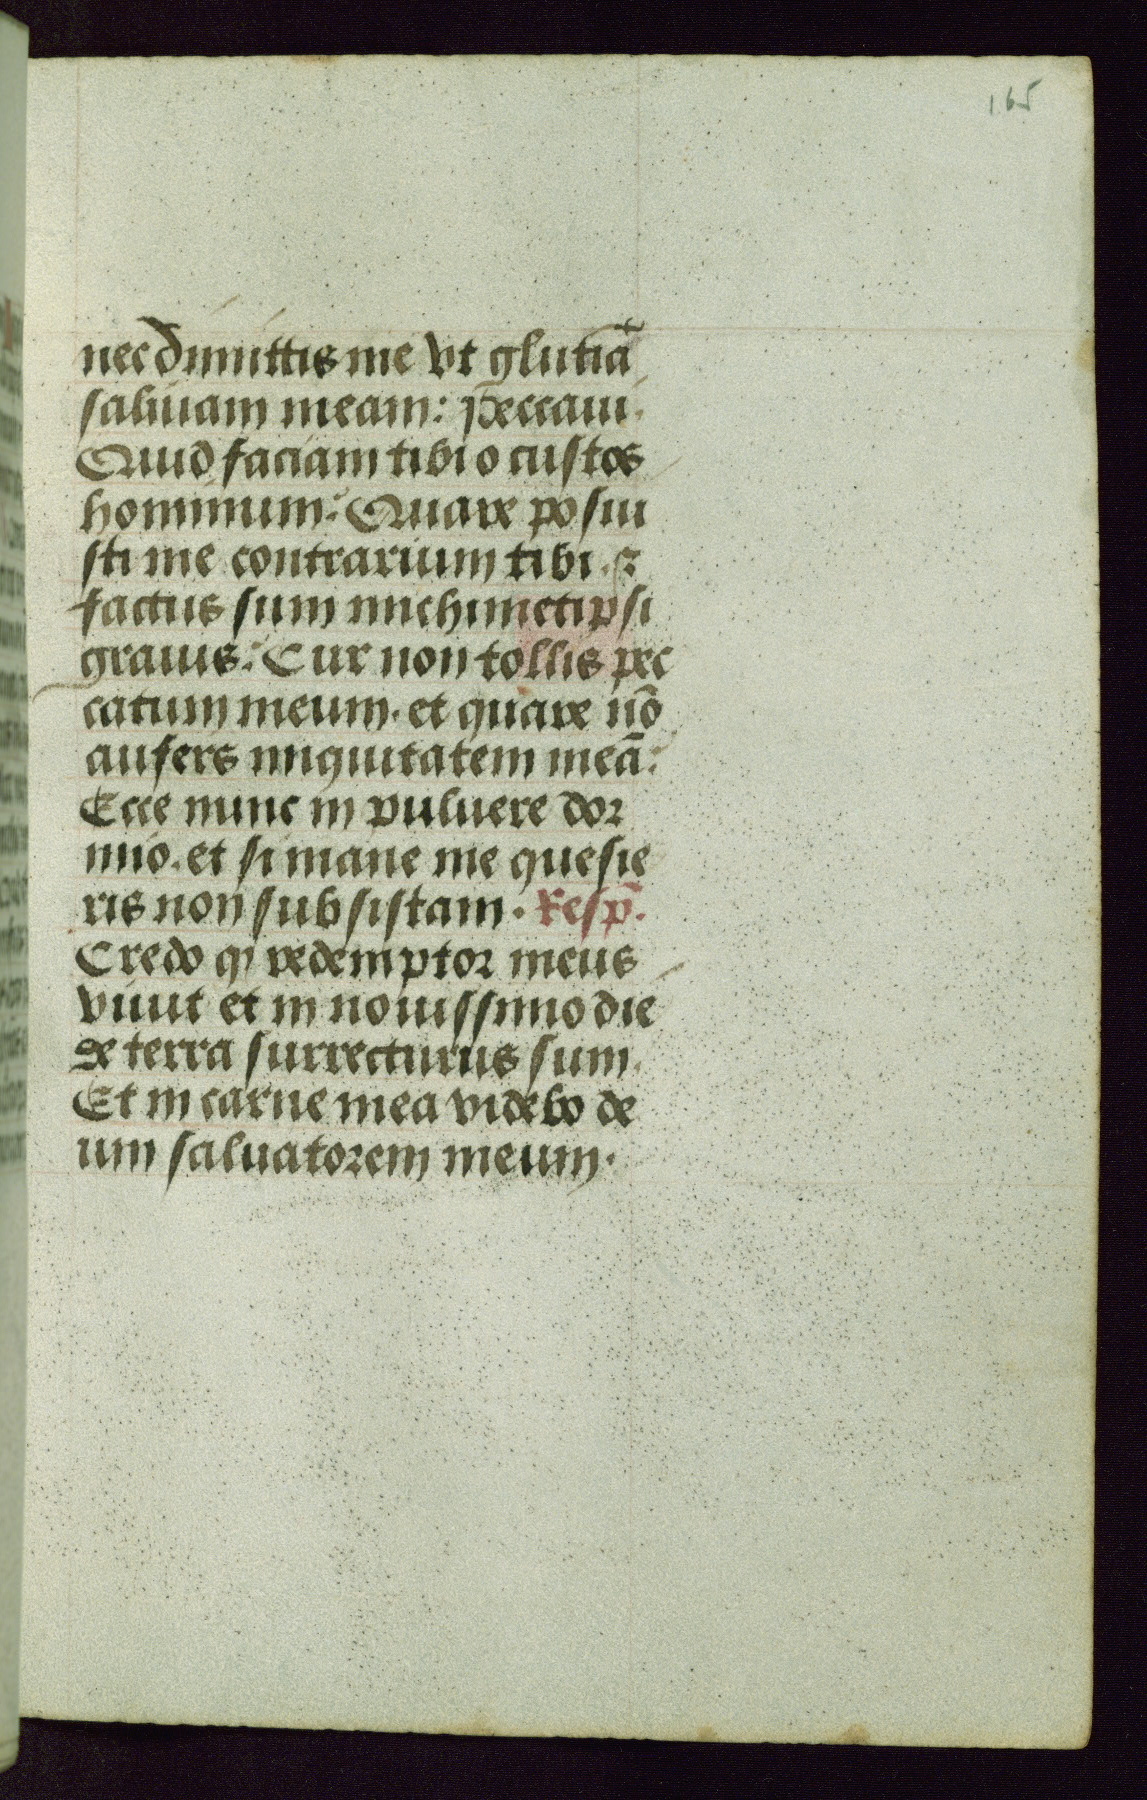 165
nec dimittis me vt glutiā
saliuam meam: peccaui.
Quid faciam tibi o custos
hominum: Quare posui
sti me contrarium tibi. ⁊
factus sum michimetipsi
grauis: Cur non tollis pec
catum meum. et quare nō
aufers iniquitatem meā:
Ecce nunc in puluere dor
mio. et si mane me quesie
ris non subsistam. Resp̄.
Credo ꝙ redemptor meus
viuit et in nouissimo die
de terra surrecturus sum.
Et in carne mea videbo de
um saluatorem meum.